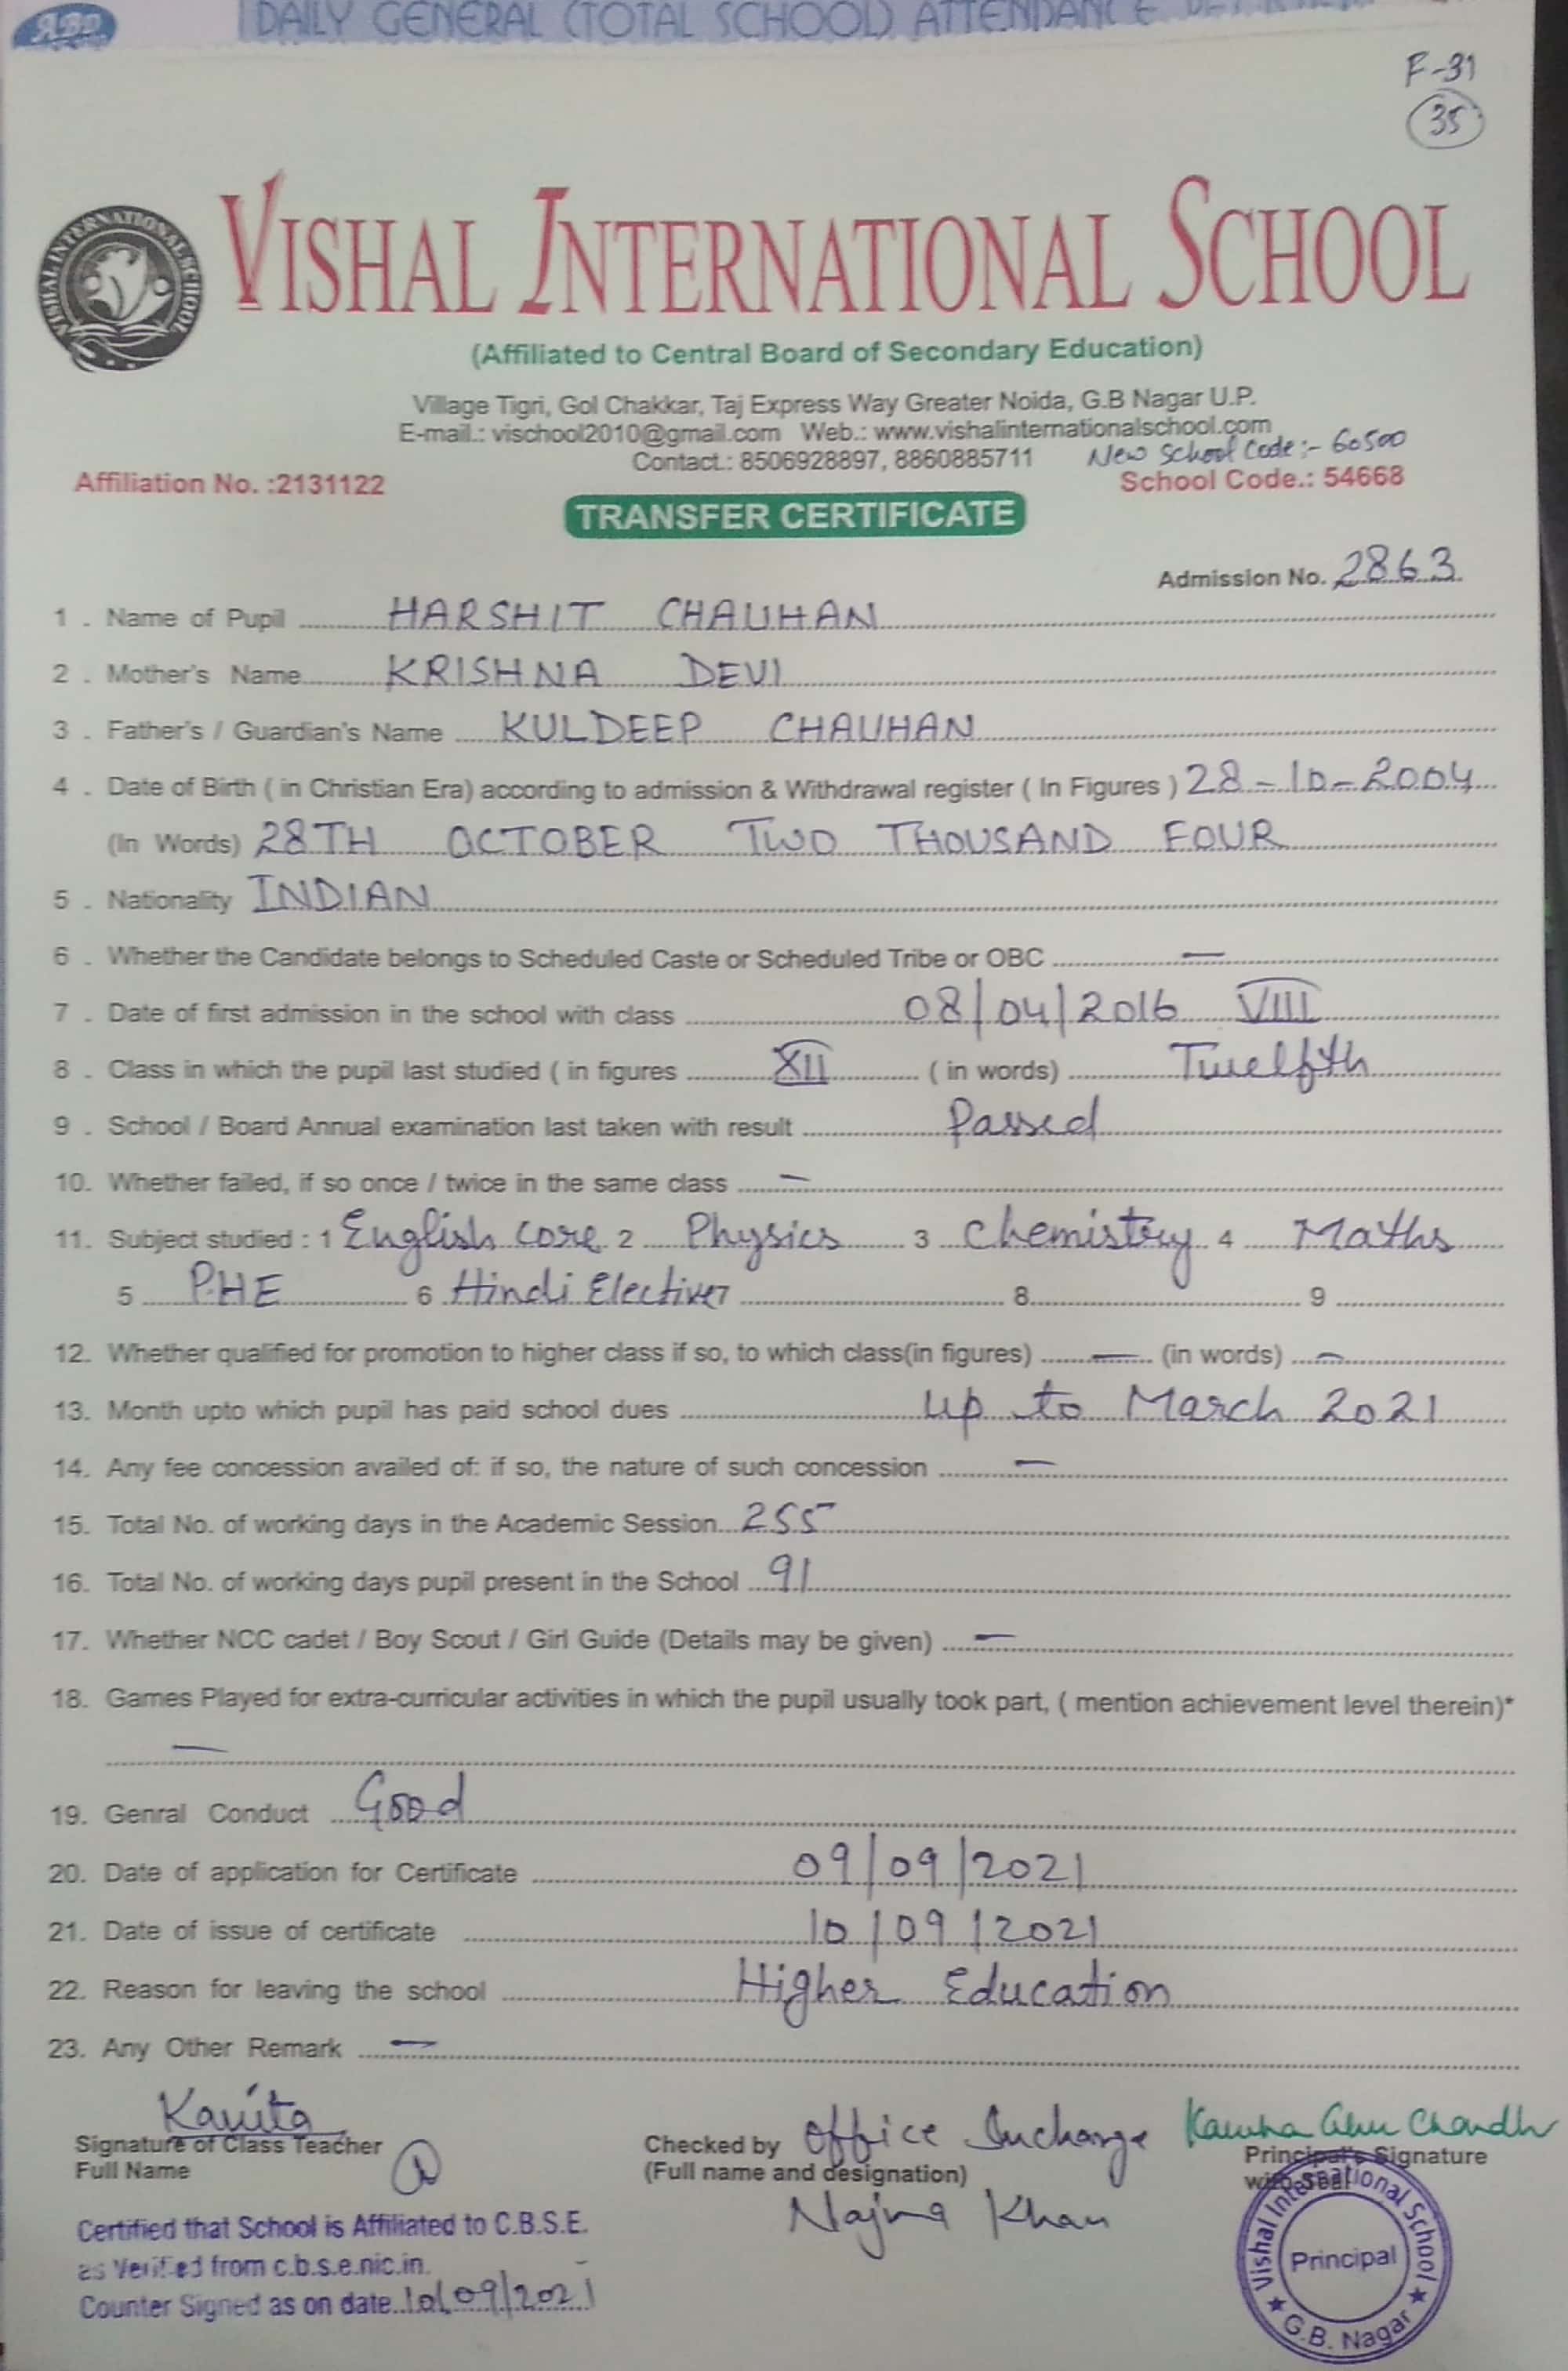 DAILY GENERAL (TOTAL SCHOOL) ATTENDANCE
F-31
35
VISHAL INTERNATIONAL SCHOOL
VISHAL INTERNATIONAL SCHOOL
(Affiliated to Central Board of Secondary Education)
Village Tigri, Gol Chakkar, Taj Express Way Greater Noida, G.B Nagar U.P.
E-mail.: vischool2010@gmail.com Web.: www.vishalinternationalschool.com
Contact.: 8506928897, 8860885711 New School Code:- 60500
Affiliation No. :2131122 School Code.: 54668
TRANSFER CERTIFICATE
Admission No. 2863
1 . Name of Pupil HARSHIT CHAUHAN
2 . Mother's Name KRISHNA DEVI
3 . Father's / Guardian's Name KULDEEP CHAUHAN
4 . Date of Birth ( in Christian Era) according to admission & Withdrawal register ( In Figures ) 28-10-2004
(In Words) 28TH OCTOBER TWO THOUSAND FOUR
5 . Nationality INDIAN
6 . Whether the Candidate belongs to Scheduled Caste or Scheduled Tribe or OBC —
7 . Date of first admission in the school with class 08/04/2016 VIII
8 . Class in which the pupil last studied ( in figures XII ( in words) Twelfth
9 . School / Board Annual examination last taken with result Passed
10. Whether failed, if so once / twice in the same class —
11. Subject studied : 1 English core 2 Physics 3 Chemistry 4 Maths
5 PHE 6 Hindi Elective 7 8 9
12. Whether qualified for promotion to higher class if so, to which class(in figures) — (in words) —
13. Month upto which pupil has paid school dues up to March 2021
14. Any fee concession availed of: if so, the nature of such concession —
15. Total No. of working days in the Academic Session 255
16. Total No. of working days pupil present in the School 91
17. Whether NCC cadet / Boy Scout / Girl Guide (Details may be given) —
18. Games Played for extra-curricular activities in which the pupil usually took part, ( mention achievement level therein)*
—
19. Genral Conduct Good
20. Date of application for Certificate 09/09/2021
21. Date of issue of certificate 10/09/2021
22. Reason for leaving the school Higher Education
23. Any Other Remark —
Kavita Office Incharge
Signature of Class Teacher Checked by Principal's Signature
Full Name (Full name and designation) with Seal
Najma Khan
Certified that School is Affiliated to C.B.S.E.
as Verified from c.b.s.e.nic.in.
Counter Signed as on date 10/09/2021
Vishal International School
Principal
G.B. Nagar